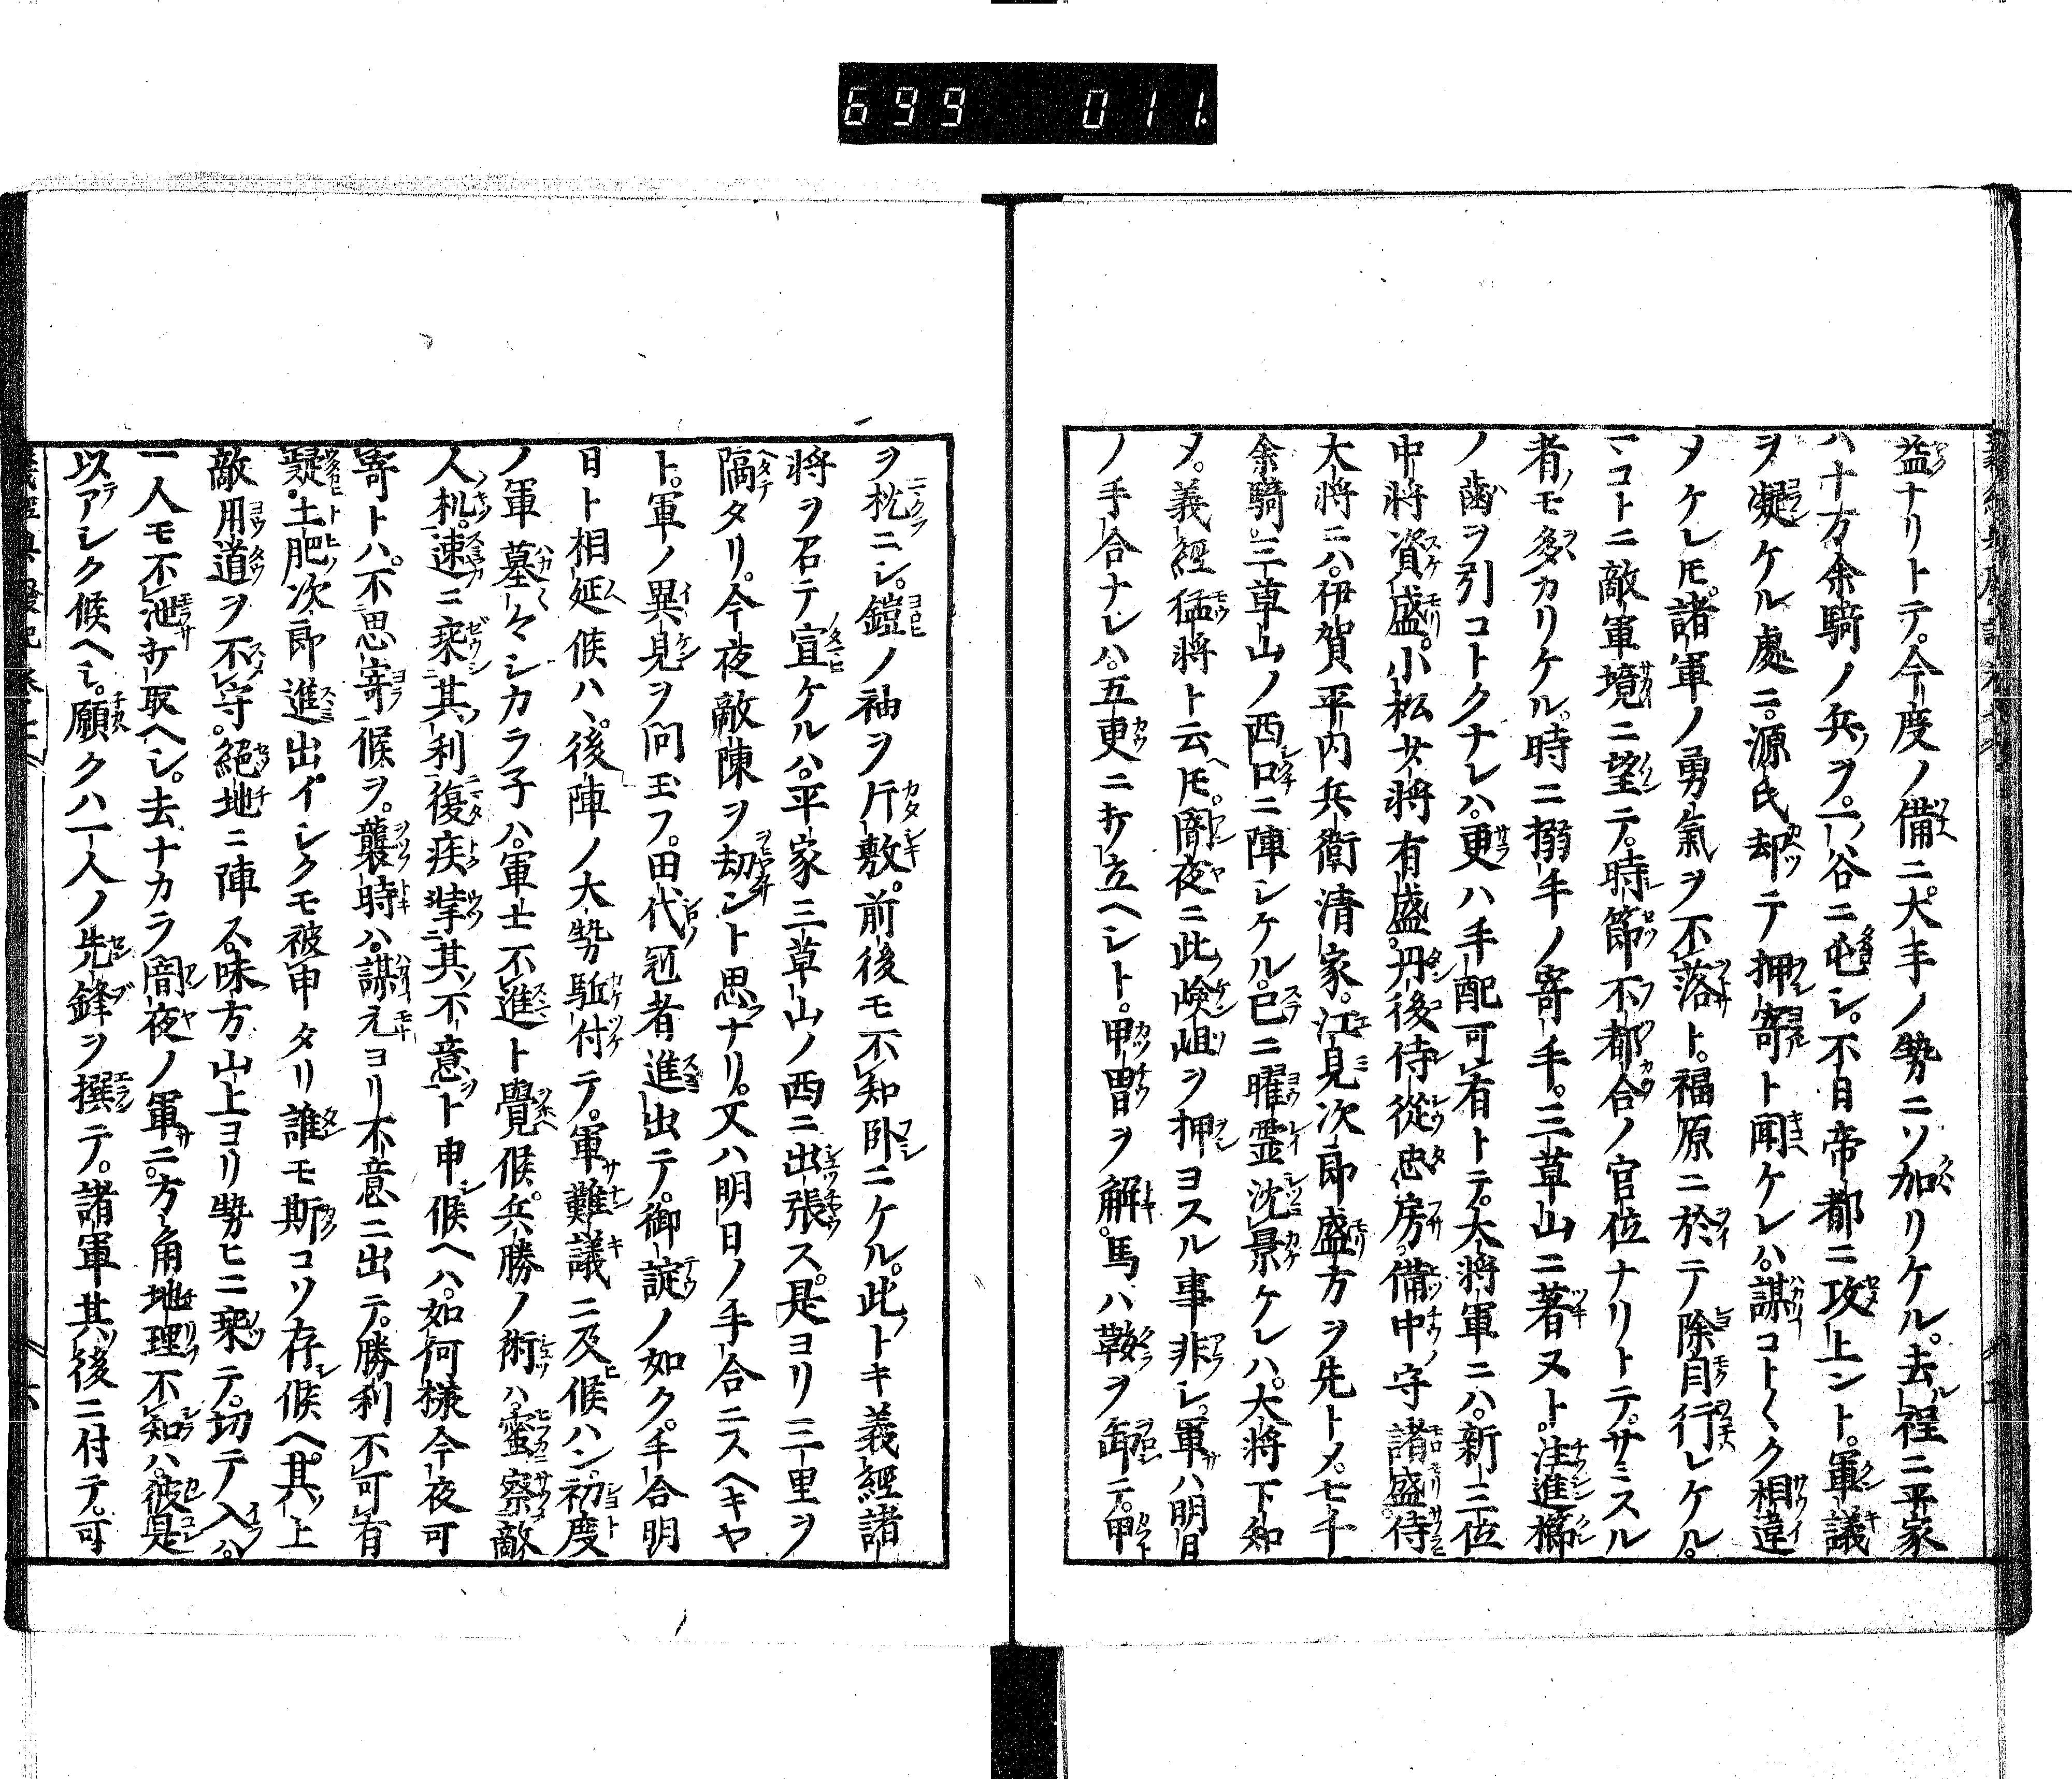 699 011.
益ナリトテ。今度ノ備ニ。大手ノ勢ニソ加リケル。去程ニ平家
ハ十万余騎ノ兵ヲ。一谷ニ屯シ。不日帝都ニ攻上ント。軍議
ヲ凝ケル處ニ。源氏却テ押寄ト聞ケレハ。謀コト〱ク相違
メケレ𪜈。諸軍ノ勇氣ヲ不落ト。福原ニ於テ除目行レケル。
マコトニ敵軍境ニ望テ。時節不都合ノ官位ナリトテ。サミスル
者モ多カリケル。時ニ搦手ノ寄手。三草山ニ著ヌト。注進櫛
ノ歯ヲ引コトクナレハ。更ハ手配可有トテ。大将軍ニハ。新三位
中将資盛。小松少将有盛。丹後侍従忠房。備中守諸盛。侍
大将ニハ。伊賀平内兵衛清家。江見次郎盛方ヲ先トメ。七千
余騎。三草山ノ西口ニ陣シケル。已ニ曜霊沈景ケレハ。大将下知
メ。義経猛将ト云𪜈。闇夜ニ此嶮岨ヲ押ヨスル事非レ。軍ハ明日
ノ手合ナレハ。五更ニ打立ヘシト。甲冑ヲ解。馬ハ鞍ヲ卸テ。甲
ヲ枕ニシ。鎧ノ袖ヲ片敷。前後モ不知卧ニケル。此トキ義経諸
将ヲ召テ宣ケルハ。平家三草山ノ西ニ出張ス。是ヨリ三里ヲ
隔タリ。今夜敵陳ヲ劫ント思ナリ。又ハ明日ノ手合ニスヘキヤ
ト。軍ノ異見ヲ問玉フ。田代冠者進出テ。御諚ノ如ク。手合明
日ト相延候ハヽ。後陣ノ大勢駈付テ。軍難議ニ及候ハン。初度
ノ軍墓々シカラ子ハ。軍士不進ト覺候。兵勝ノ術ハ。蜜察敵
人机。速ニ乘其利復疾撃其不意ト申候ヘハ。如何様今夜可
寄トハ。不思寄候ヲ。襲時ハ。謀元ヨリ不意ニ出テ。勝利不可有
疑。土肥次郎進出イシクモ被申タリ誰モ斯コソ存候ヘ。其上
敵用道ヲ不守。絶地ニ陣ス。味方山上ヨリ勢ヒニ乘テ。切テ入ハ。
一人モ不泄打取ヘシ。去ナカラ闇夜ノ軍ニ。方角地理不知ハ。彼是
以アシク候ヘシ。願クハ一人ノ先鋒ヲ撰テ。諸軍其後ニ付テ。可